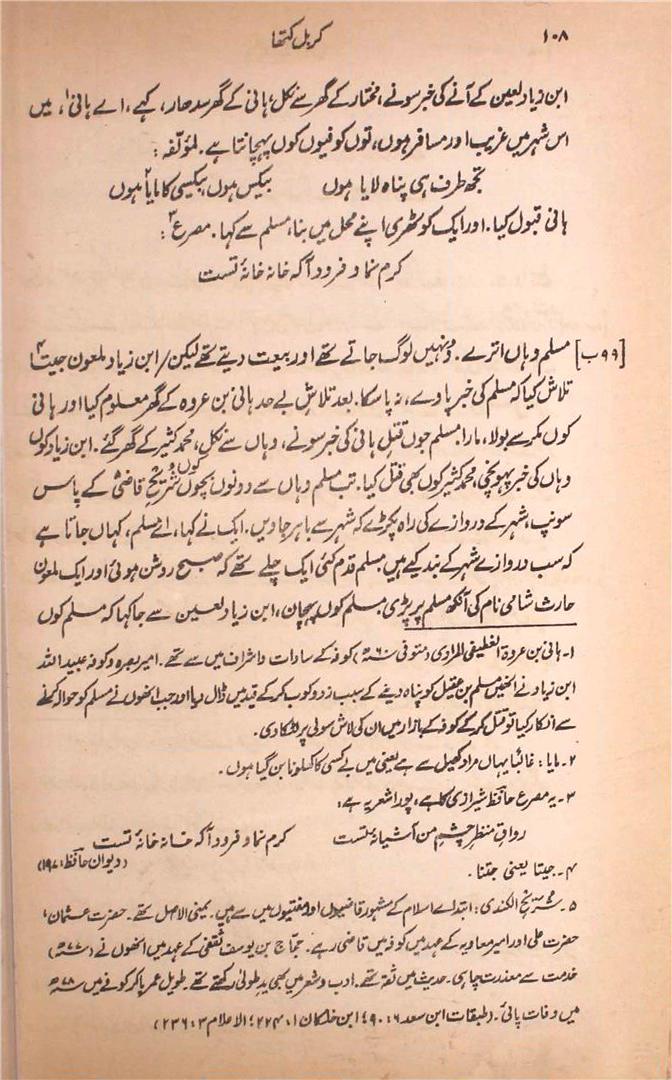 ۱۰۸ کربل کتھا
ابن زیاد لعین کے آنے کی خبر سونے، مختار کے گھر سے نکل؛ ہانی کے گھر سدھار، کہے، اے ہانی۱، میں
اس شہر میں غریب اور مسافر ہوں، توں کوفیوں کوں پہچانتا ہے۔ لمؤلّفہ:
تجھ طرف ہی پناہ لایا ہوں بیکس ہوں بیکسی کا مایا۲ ہوں
ہانی قبول کیا۔ اور ایک کوٹھری اپنے محل میں بنا، مسلم سے کہا۔ مصرع۳:
کرم نما و فرود آ کہ خانہ خانۂ تست
[۹۹ب] مسلم وہاں اترے۔ وونہیں لوگ جاتے تھے اور بیعت دیتے تھے لیکن/ ابن زیاد ملعون جیتا۴
تلاش کیا کہ مسلم کی خبر پاوے، نہ پا سکا۔ بعد تلاشِ بے حد ہانی بن عروہ کے گھر معلوم کیا اور ہانی
کوں مکر سے بولا، مارا۔ مسلم جوں قتلِ ہانی کی خبر سونے، وہاں سے نکل، محمد کثیر کے گھر گئے۔ ابن زیاد کوں
وہاں کی خبر پہونچی، محمد کثیر کوں بھی قتل کیا۔ تب مسلم وہاں سے دونوں بچوں کوں شریح قاضی۵ کے پاس
سونپ، شہر کے دروازے کی راہ پکڑے کہ شہر سے باہر جاویں۔ ایک نے کہا، اے مسلم، کہاں جاتا ہے
کہ سب دروازے شہر کے بند کیے ہیں۔ مسلم قدم کئی ایک چلے تھے کہ صبح روشن ہوئی اور ایک ملعون
حارث شامی نام کی آنکھ مسلم پر پڑی، مسلم کوں پہچان، ابن زیاد لعین سے جا کہا کہ مسلم کوں
۱۔ ہانی بن عروۃ الغطیفی المرادی (متوفی ۶۰ھ) کوفہ کے سادات و اشراف میں سے تھے۔ امیر بصرہ و کوفہ عبیداللہ
ابن زیاد نے انھیں مسلم بن عقیل کو پناہ دینے کے سبب زد و کوب کر کے قید میں ڈال دیا اور جب انھوں نے مسلم کو حوالہ کرنے
سے انکار کیا تو قتل کر کے کوفہ کے بازار میں ان کی لاش سولی پر لٹکا دی۔
۲۔ مایا: غالباً یہاں مراد کھیل سے ہے یعنی میں بے کسی کا کھلونا بن گیا ہوں۔
۳۔ یہ مصرع حافظ شیرازی کا ہے، پورا شعر یہ ہے:
رواقِ منظرِ چشمِ من آشیانۂ تست کرم نما و فرود آ کہ خانہ خانۂ تست
(دیوان حافظ: ۱۹۷)
۴۔ جیتا یعنی جتنا۔
۵۔ شریح الکندی: ابتداے اسلام کے مشہور قاضیوں اور مفتیوں میں سے ہیں۔ یمنی الاصل تھے۔ حضرت عثمان،
حضرت علی اور امیر معاویہ کے عہد میں کوفہ میں قاضی رہے۔ حجاج بن یوسف ثقفی کے عہد میں انھوں نے (۷۷ھ)
خدمت سے معذرت چاہی۔ حدیث میں ثقہ تھے۔ ادب و شعر میں بھی یدِ طولیٰ رکھتے تھے۔ طویل عمر پا کر کوفے میں ۷۸ھ
میں وفات پائی۔ (طبقات ابن سعد ۶: ۹۰؛ ابن خلکان ۱: ۲۲۴؛ الاعلام ۳: ۲۳۶)